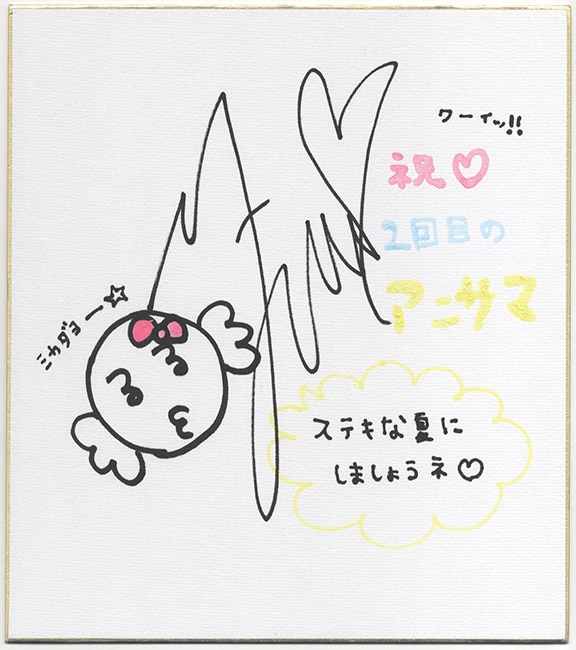 ワーイッ!!
祝♡
2回目の
アニサマ
ミカダヨー☆
ステキな夏に
しましょうネ♡